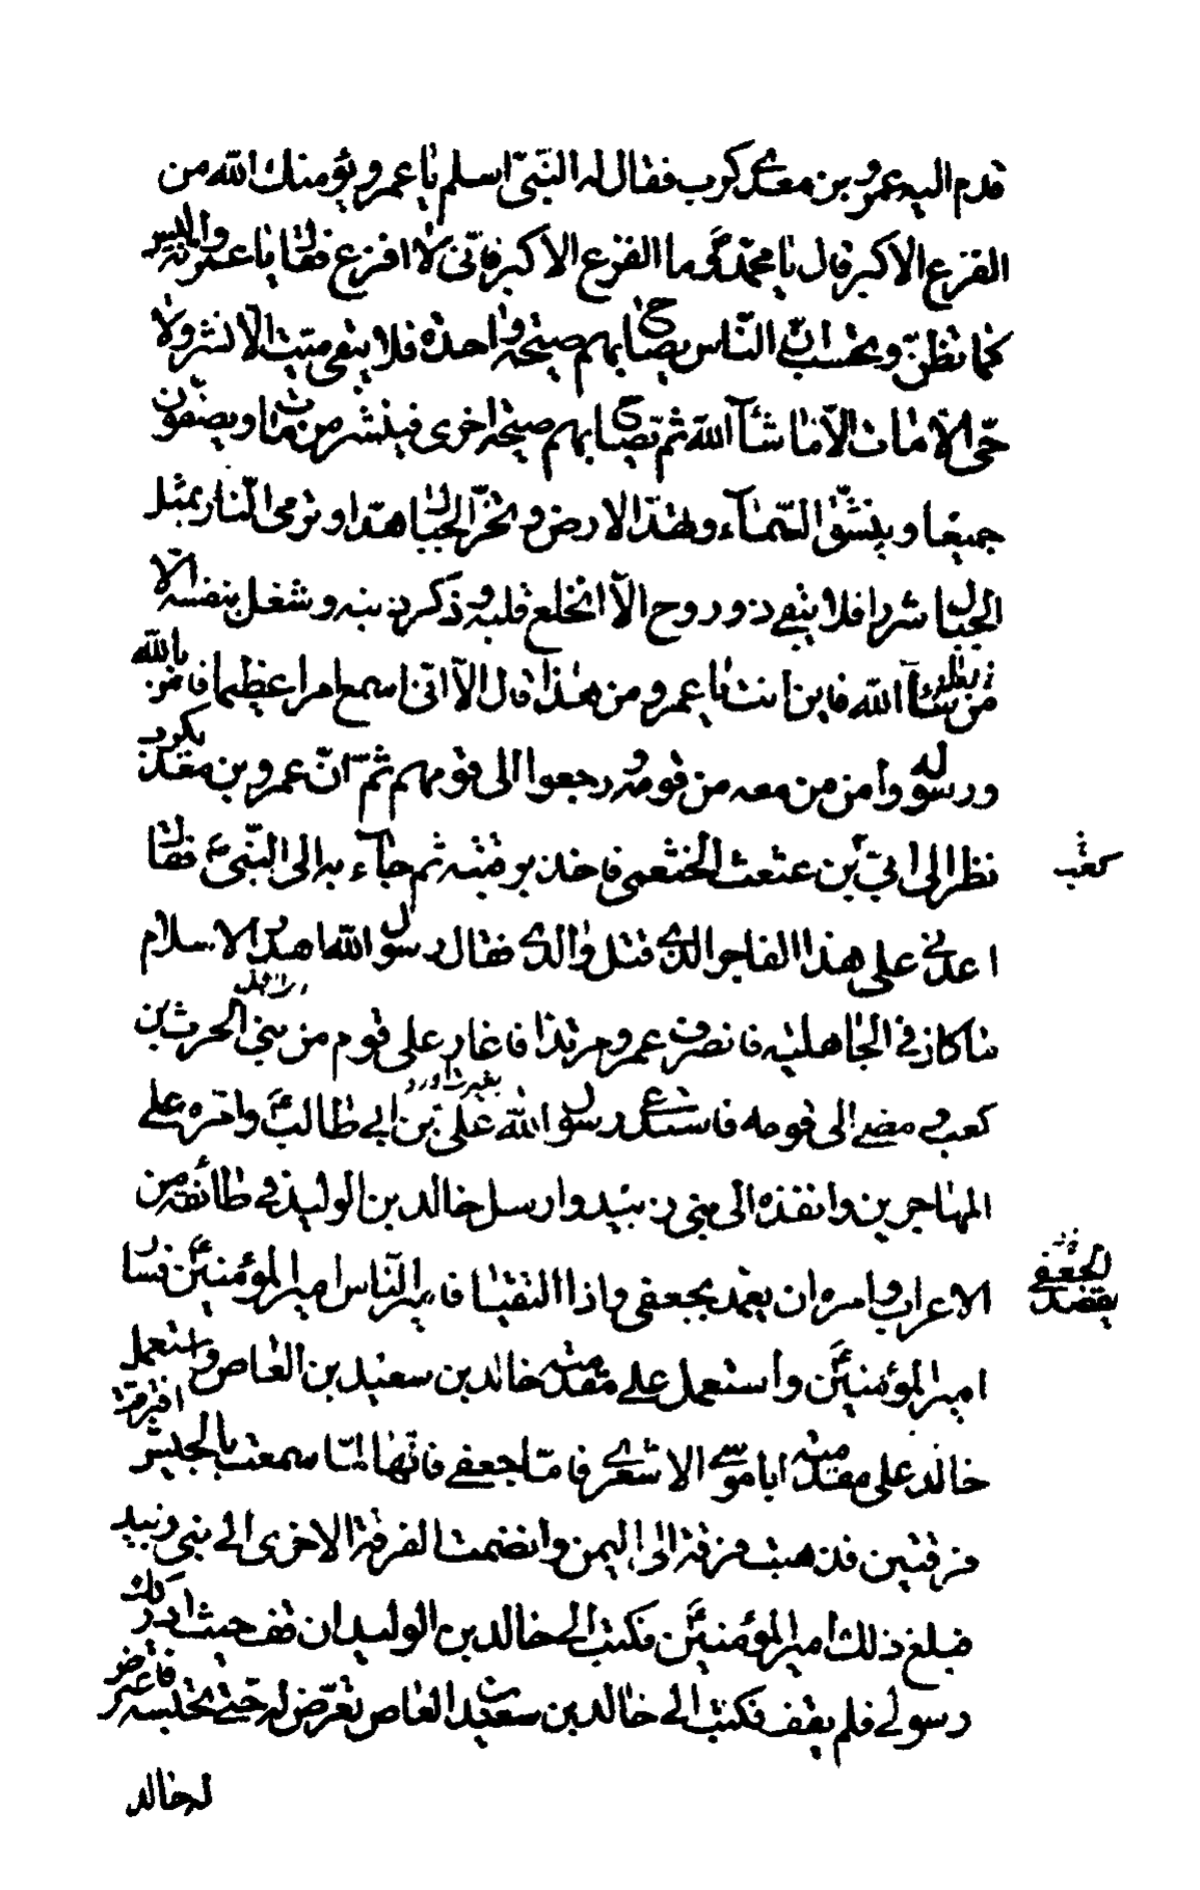 قدم اليه عمرو بن معدي كرب فقال له النّبيّ اسلم يا عمرو يؤمنك الله من
الفزع الاكبر قال يا محمّد وما الفزع الاكبر فانّى لا افزع فقال يا عمرو انّه ليس
كما تظنّ وتحسب انّ النّاس يصاح بهم صيحة واحدة فلا يبقى ميّت الّا نشر ولا
حىّ الّا مات الّا ما شآء الله ثم يصاح بهم صيحة اخرى فينشر من مات ويصفّون
جميعا وينشقّ السّمآء وتهدّ الارض وتخرّ الجبال هدّا وترمى النّار بمثل
الجبال شررا فلا يبقى ذو روح الّا انخلع قلبه وذكر ذنبه وشغل بنفسه الّا
من شآء الله فاين انت يا عمرو من هذا قال الا انّى اسمع امرا عظيما فامن بالله
ورسوله وامن من معه من قومه ورجعوا الى قومهم ثمّ انّ عمرو بن معدي كرب
نظر الى ابىّ بن عثعث الخثعمى فاخذ برقبته ثم جآء به الى النّبىّ ع فقال
كعب
اعدنى على هذا الفاجر الذى قتل والدى فقال رسول الله اهدر الاسلام
ما كان فى الجاهلية فانصرف عمرو مرتدا فاغار على قوم من بنى الحرث بن
كعب ومضى الى قومه فاستدعى رسول الله على بن ابى طالب ع وامّره على
المهاجرين وانفذه الى بنى زبيد وارسل خالد بن الوليد فى طائفة من
الاعراب وامره ان يعمد بجعفى واذا التقيا فامير النّاس امير المؤمنين فسار
الجعفى
يقصد
امير المؤمنين واستعمل على مقدمته خالد بن سعيد بن العاص واستعمل
خالد على مقدمته ابا موسى الاشعرى فامّا جعفى فانّها لمّا سمعت بالجيش افترقت
فرقتين فذهبت فرقة الى اليمن وانضمت الفرقة الاخرى الى بنى زبيد
فبلغ ذلك امير المؤمنين فكتب الى خالد بن الوليد ان قف حيث ادركك
رسولى فلم يقف فكتب الى خالد بن سعيد بن العاص تعرّض له حتى تحبسه فاعترض
له خالد